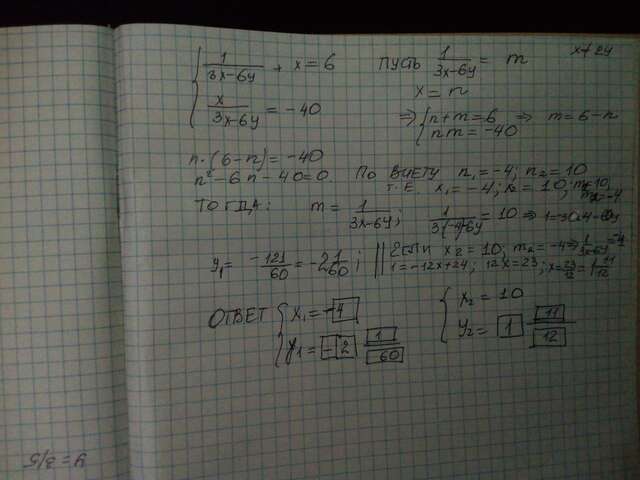 1/(3x-6y) + x = 6    ПУСТЬ 1/(3x-6y) = m
x/(3x-6y) = -40    x = n
⇒ { n+m=6 ⇒ m=6-n
nm=-40
n·(6-n)=-40
n²-6n-40=0. По ВИЕТУ n₁=-4; n₂=10
т.е. x₁=-4; x₂=10; m₁=10,
m₂=-4
ТОГДА: m = 1/(3x-6y); 1/(3(-4)-6y) = 10 ⇒
y₁ = -121/60 = -2 1/60; || ЕСЛИ x₂=10; m₂=-4 ⇒ 1/(3x-6y)=-4
1=-12x+24; 12x=23; x=23/12=1 11/12
ОТВЕТ { x₁=-4    { x₂=10
y₁=-2 1/60    y₂=1 11/12
y = 3/5